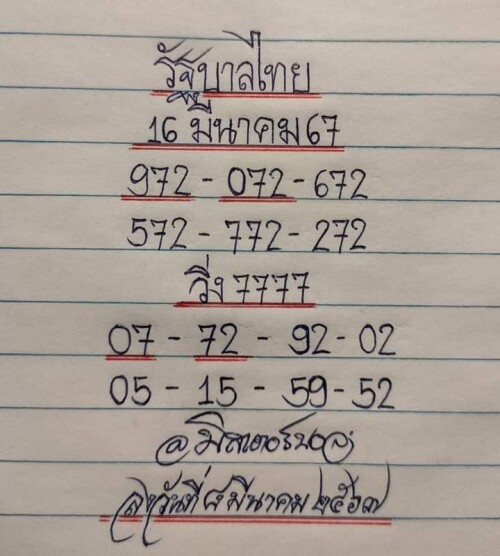 รัฐบาลไทย
16 มีนาคม 67
972 - 072 - 672
572 - 772 - 272
วิ่ง 7777
07 - 72 - 92 - 02
05 - 15 - 59 - 52
@มิสเตอร์บอล
วันที่ ๘ มีนาคม ๒๕๖๗